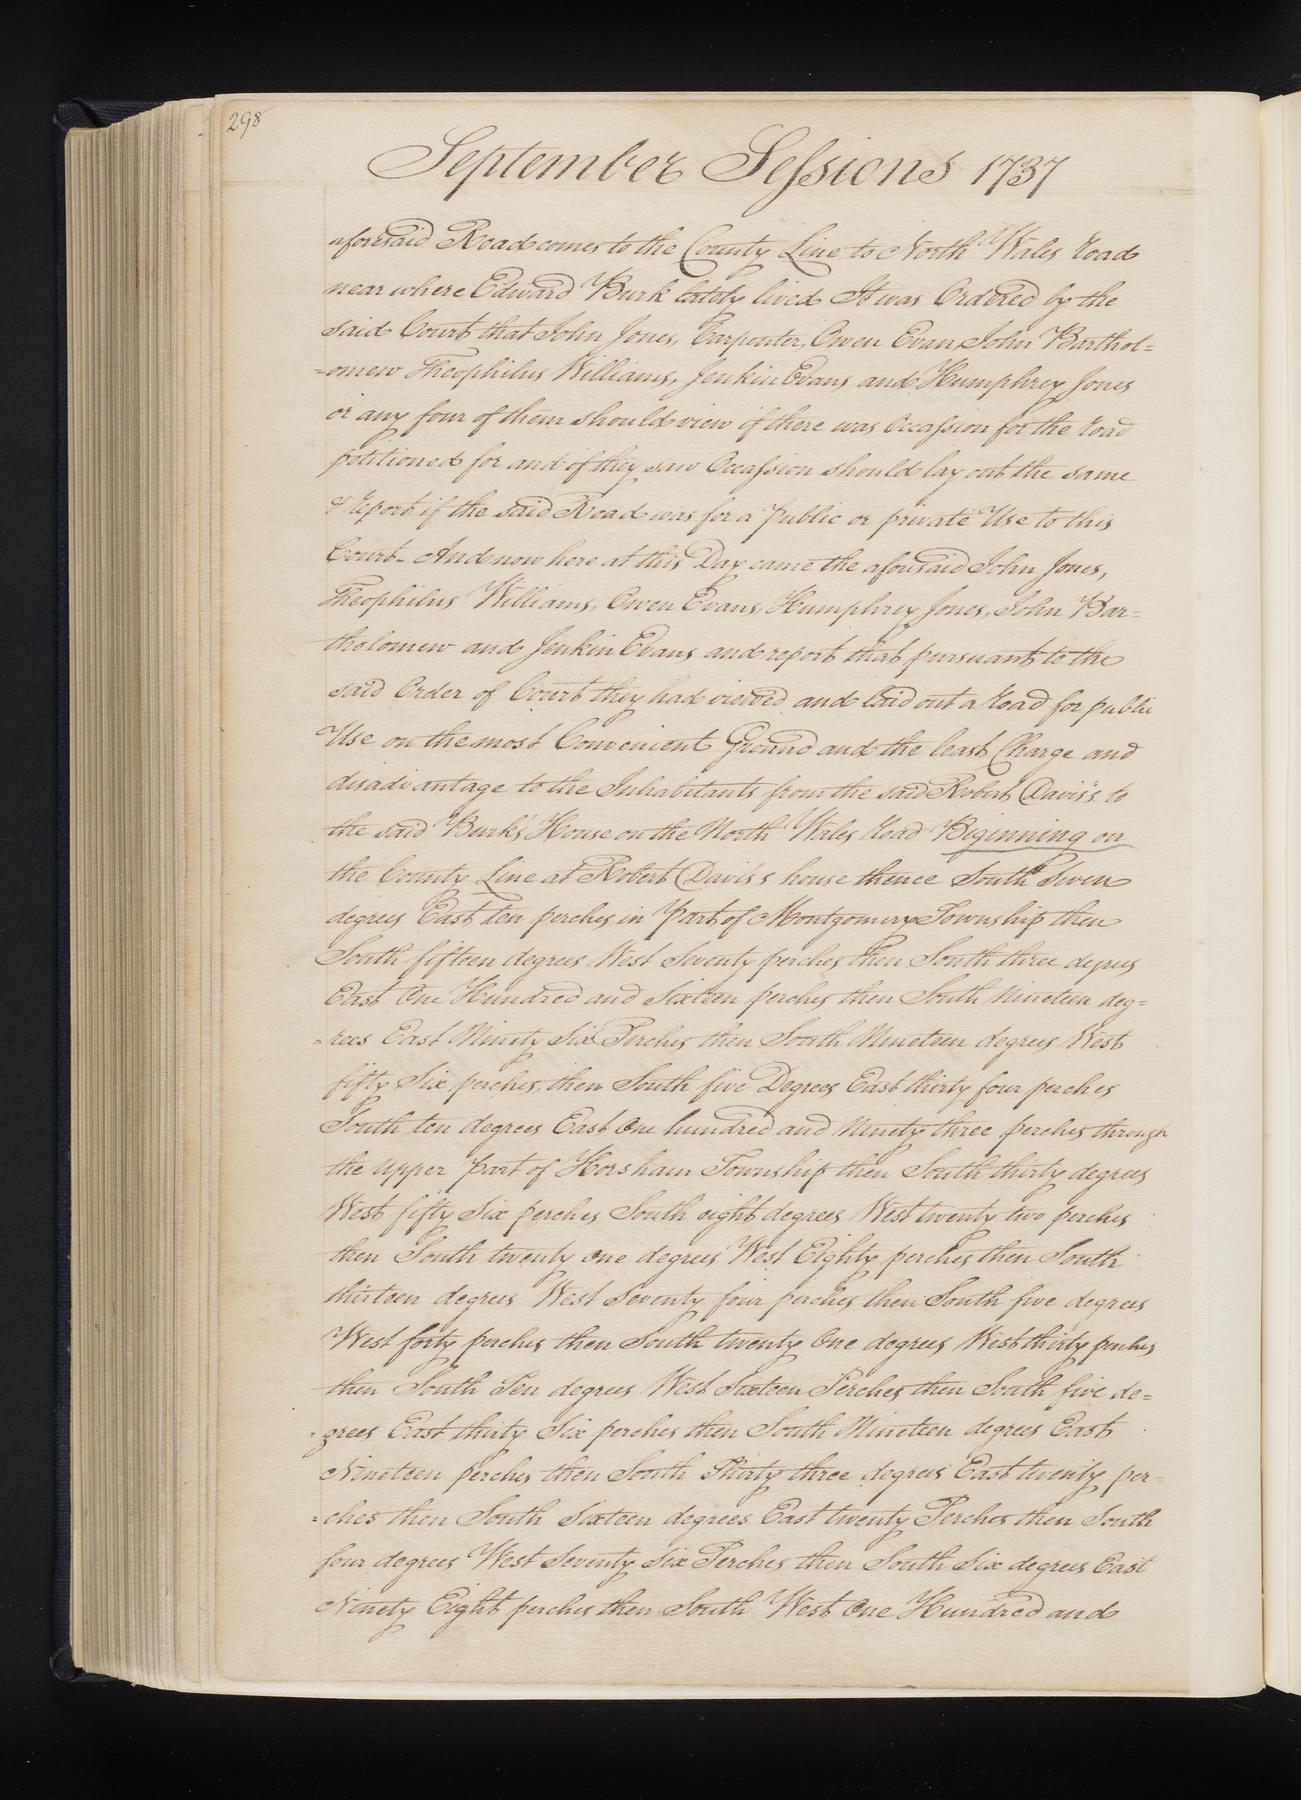 298
September Sessions 1737
aforesaid Road comes to the County Line to North Wales road
near where Edward Burk lately lived It was Ordered by the
said Court that John Jones, Carpenter, Owen Evan John Barthol=
=omew Theophilus Williams, Jenkin Evans and Humphrey Jones
or any four of them should view if there was Occassion for the road
petitioned for and if they saw Occassion should lay out the same
& report if the said Road was for a public or private Use to this
Court - And now here at this Day came the aforesaid John Jones,
Theophilus Williams, Owen Evans, Humphrey Jones, John Bar=
tholomew and Jenkin Evans and report that pursuant to the
said Order of Court they had viewed and laid out a road for public
Use on the most Convenient Ground and the least Charge and
disadvantage to the Inhabitants from the said Robert Davis's to
the said Burk's House on the North Wales road Biginning on
the County Line at Robert Davis's house thence South Seven
degrees East ten perches in Part of Montgomery Township then
South fifteen degrees West Seventy perches then South three degrees
East One Hundred and Sixteen perches then South Nineteen deg=
=rees East Ninety Six Perches then South Nineteen degrees West
fifty Six perches, then South five Degrees East thirty four perches
South ten degrees East One hundred and Ninety three perches through
the upper Part of Horsham Township then South thirty degrees
West fifty Six perches South eight degrees West twenty two perches
then South twenty one degrees West Eighty perches then South
thirteen degrees West Seventy four perches then South five degrees
West forty perches then South twenty One degrees West thirty perches
then South Ten degrees West Sixteen Perches then South five de=
=grees East thirty Six perches then South Nineteen degrees East
Nineteen perches then South Thirty three degrees East twenty per=
=ches then South Sixteen degrees East twenty Perches then South
four degrees West Seventy Six Perches then South Six degrees East
Ninety Eight perches then South West One Hundred and